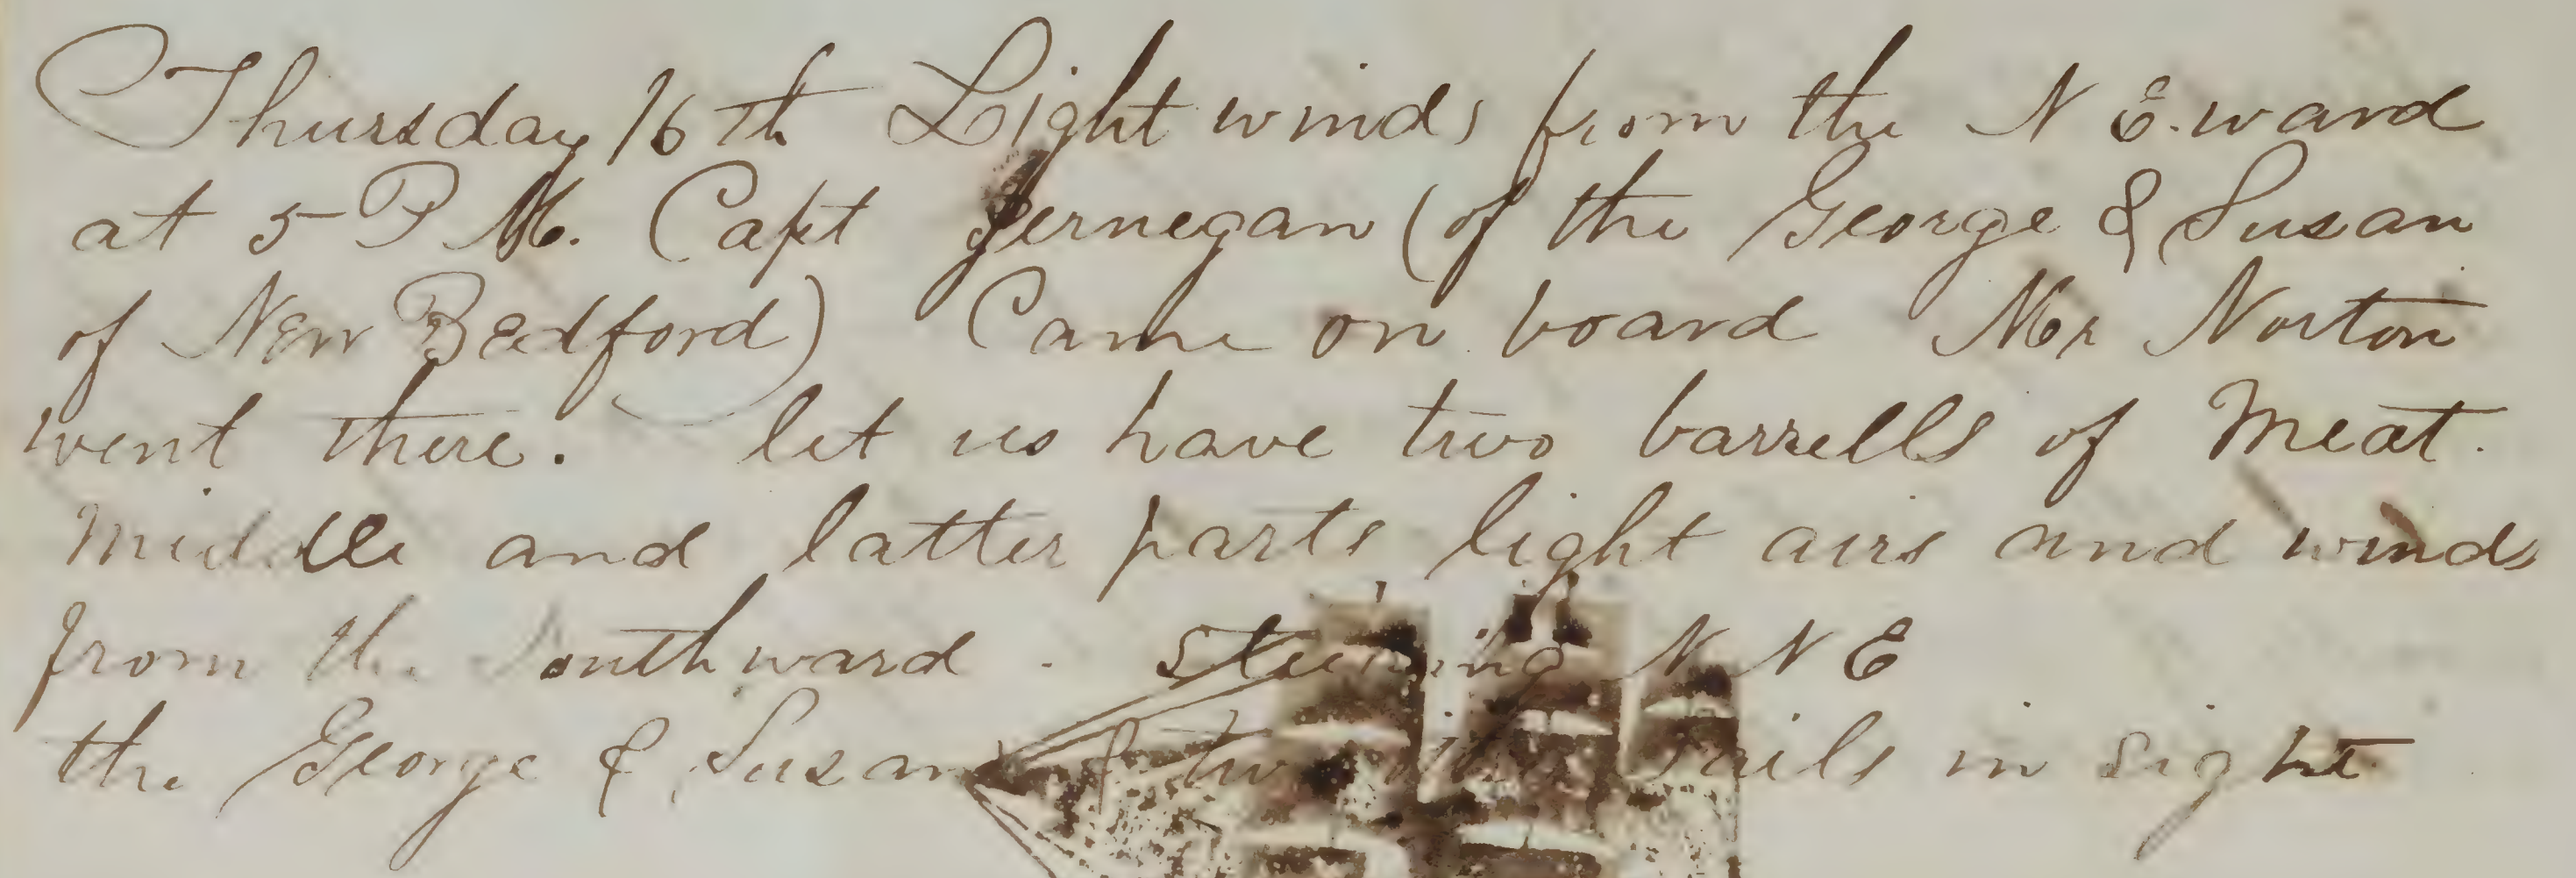 Thursday 16th Light winds from the N E.ward
at 5 P M. Capt Jernegan (of the George & Susan
of New Bedford) Came on board Mr Norton
went there. let us have two barrells of Meat.
Middle and latter parts light airs and winds
from the Southward. steering N N E
the George & Susan & two other Sails in sight